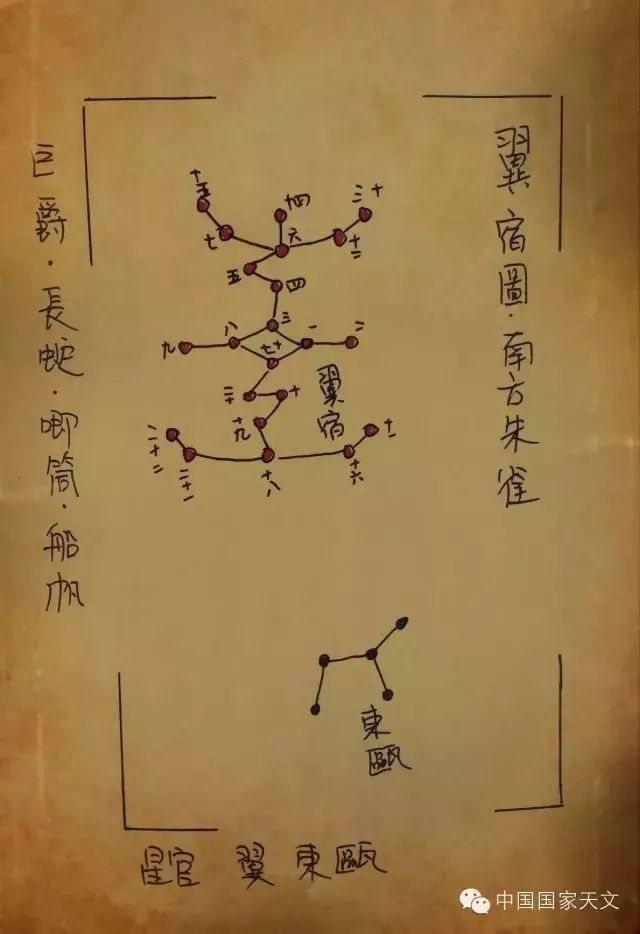 翼宿圖·南方朱雀
巨爵·長蛇·唧筒·船帆
十五
十四
十三
七
六
十二
五
四
三
九
八
一
二
十七
二十
十
翼宿
十九
十一
二十二
二十一
十八
十六
東甌
星官 翼 東甌
中国国家天文